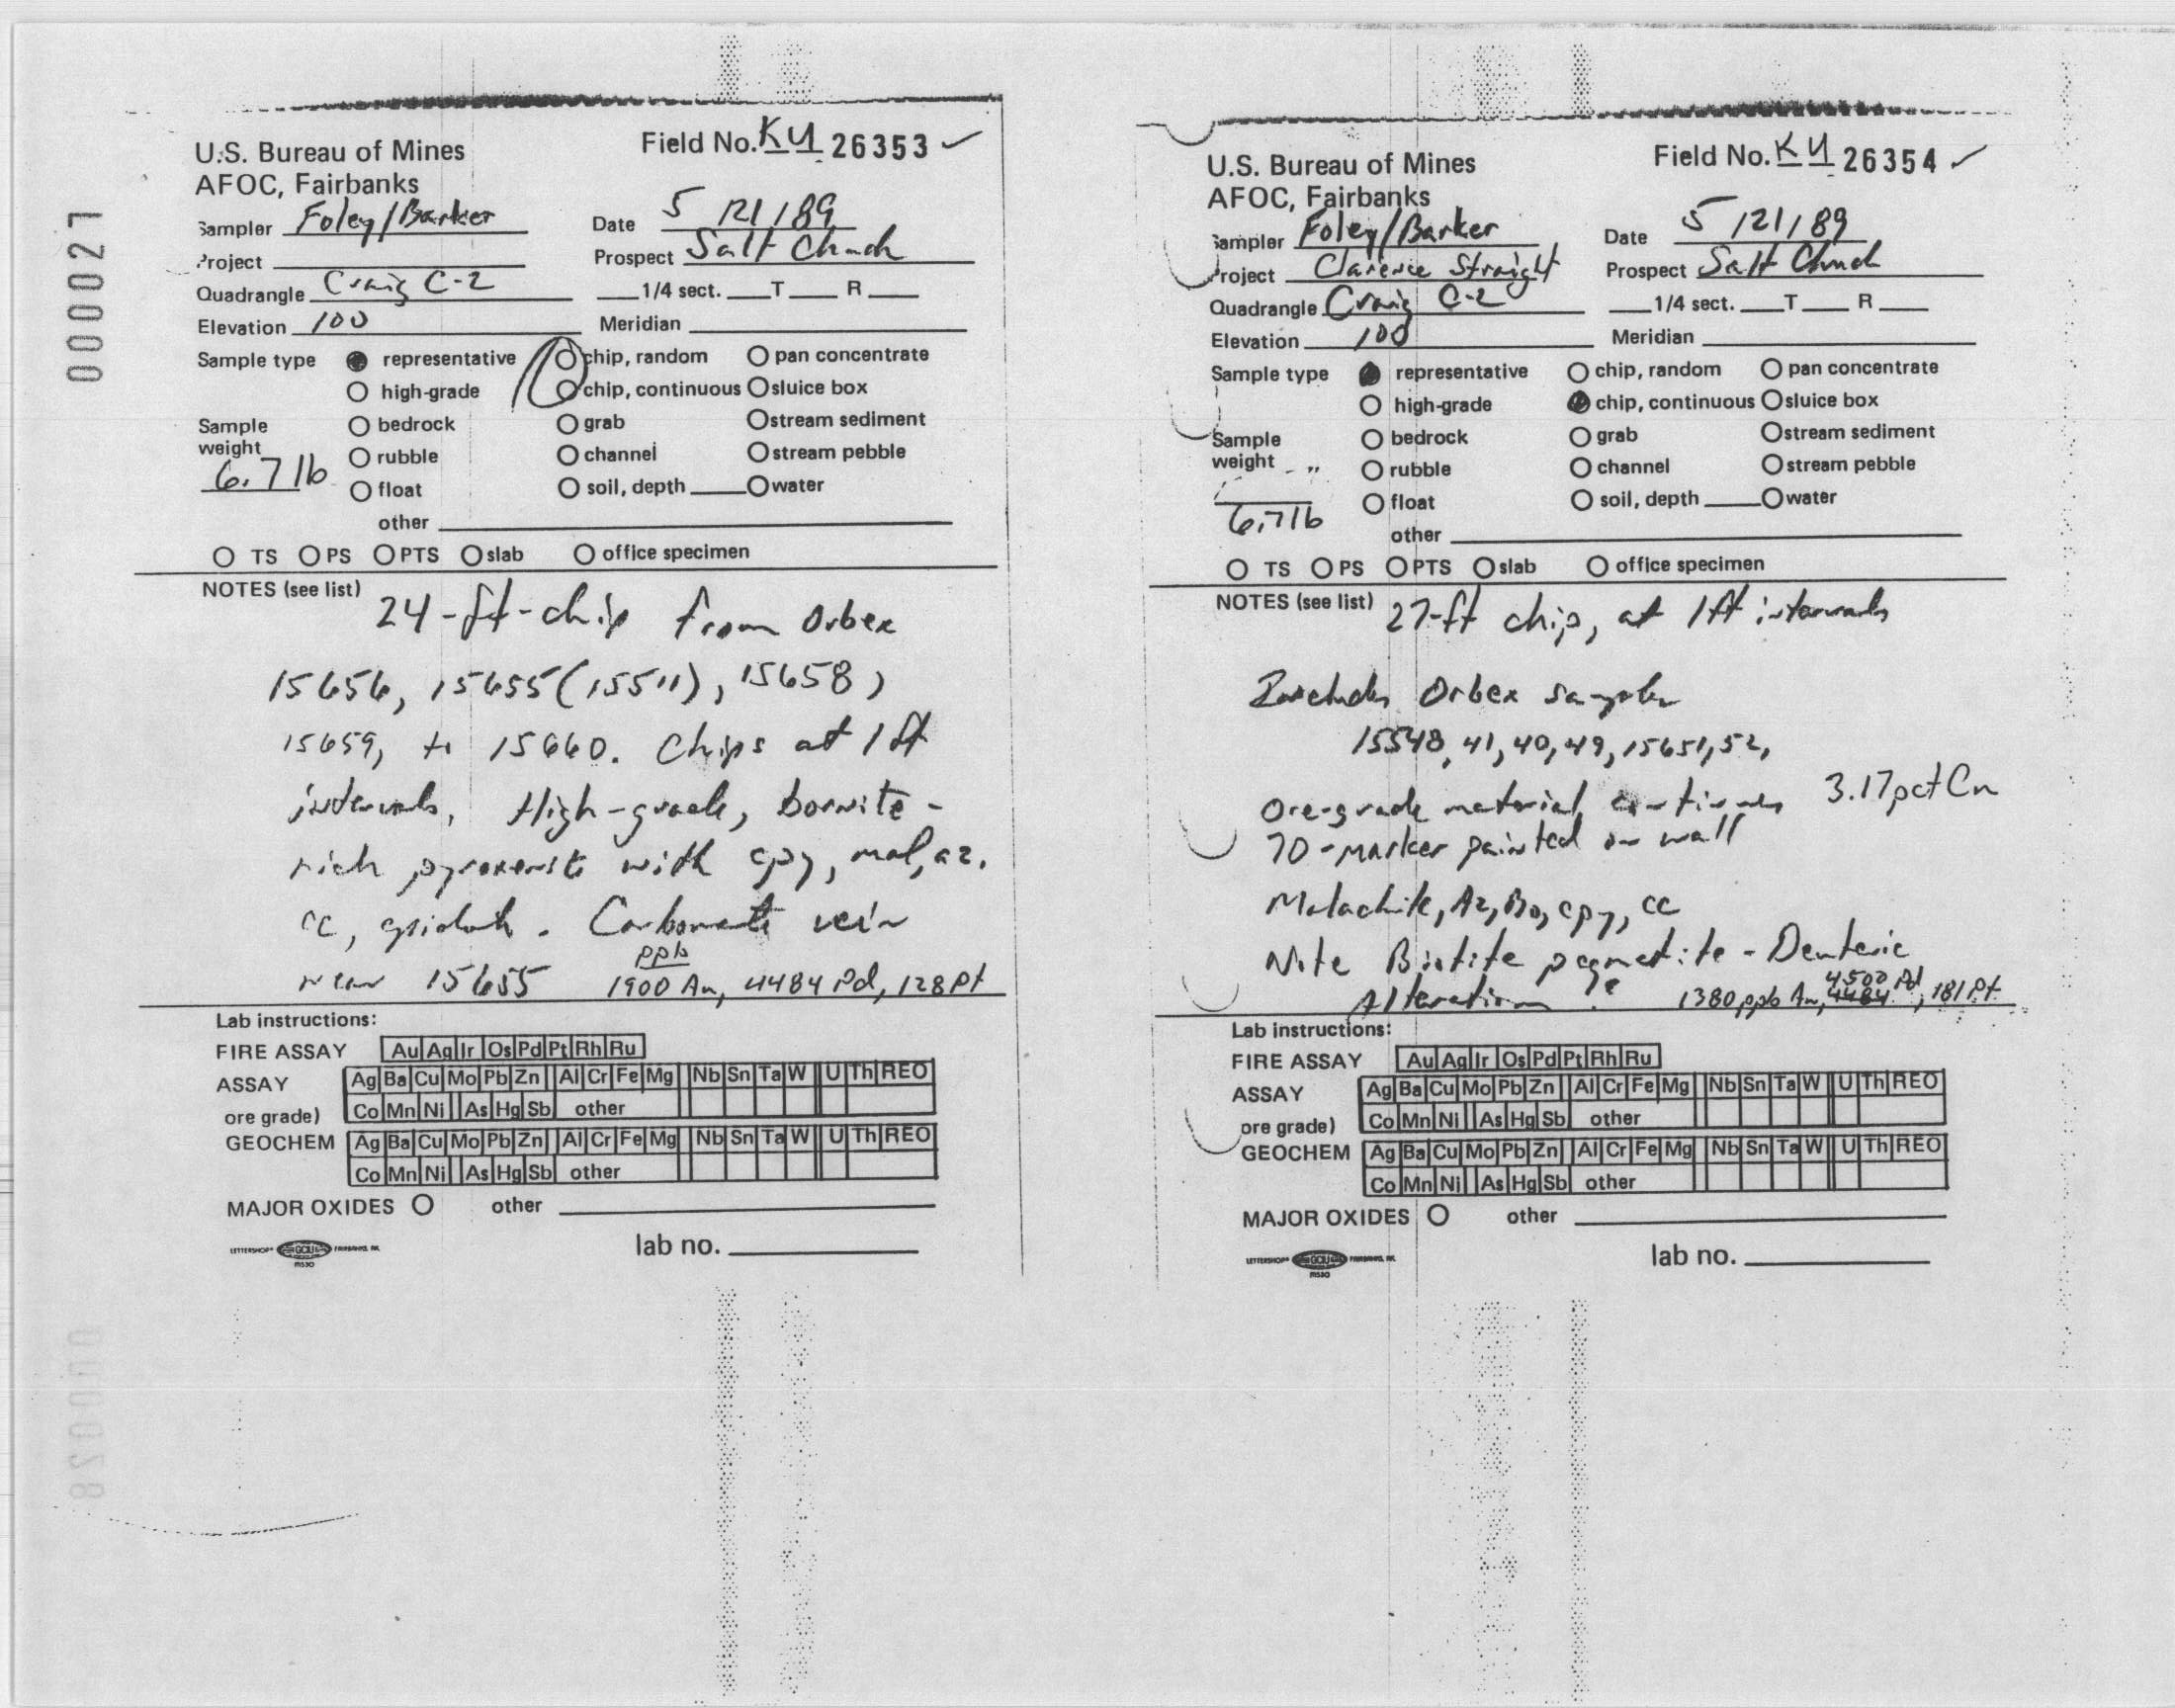 000027
U.S. Bureau of Mines
AFOC, Fairbanks
Field No. KY 26353 ✓
Sampler Foley/Barker
Date 5 /21/89
Project
Prospect Salt Chuck
Quadrangle Craig C-2
1/4 sect. T R
Elevation 100
Meridian
Sample type representative chip, random pan concentrate
high-grade chip, continuous sluice box
Sample weight bedrock grab stream sediment
6.7 lb rubble channel stream pebble
float soil, depth water
other
TS PS PTS slab office specimen
NOTES (see list)
24-ft-chip from Orbex
15656, 15655 (15511), 15658,
15659, to 15660. Chips at 1 ft
intervals. High-grade, bornite-
rich pyroxenite with cpy, mal, az.
cc, epidote. Carbonate vein
near 15655 ppb 1900 Au, 4484 Pd, 128 Pt
Lab instructions:
FIRE ASSAY Au Ag Ir Os Pd Pt Rh Ru
ASSAY Ag Ba Cu Mo Pb Zn Al Cr Fe Mg Nb Sn Ta W U Th REO
ore grade) Co Mn Ni As Hg Sb other
GEOCHEM Ag Ba Cu Mo Pb Zn Al Cr Fe Mg Nb Sn Ta W U Th REO
Co Mn Ni As Hg Sb other
MAJOR OXIDES other
LETTERSHOP GCIU FAIRBANKS, AK.
lab no.
000028
U.S. Bureau of Mines
AFOC, Fairbanks
Field No. KY 26354 ✓
Sampler Foley/Barker
Date 5 /21/89
Project Clarence Straight
Prospect Salt Chuck
Quadrangle Craig C-2
1/4 sect. T R
Elevation 100
Meridian
Sample type representative chip, random pan concentrate
high-grade chip, continuous sluice box
Sample weight bedrock grab stream sediment
rubble channel stream pebble
6.7 lb float soil, depth water
other
TS PS PTS slab office specimen
NOTES (see list)
27-ft chip, at 1 ft intervals
Includes Orbex samples
15548, 41, 40, 49, 15651, 52,
Ore-grade material continues 3.17 pct Cu
70-marker painted on wall
Malachite, Az, Bo, cpy, cc
Note Biotite pegmatite - Deuteric
Alteration ? 1380 ppb Au, 4500 Pd, 181 Pt
Lab instructions:
FIRE ASSAY Au Ag Ir Os Pd Pt Rh Ru
ASSAY Ag Ba Cu Mo Pb Zn Al Cr Fe Mg Nb Sn Ta W U Th REO
ore grade) Co Mn Ni As Hg Sb other
GEOCHEM Ag Ba Cu Mo Pb Zn Al Cr Fe Mg Nb Sn Ta W U Th REO
Co Mn Ni As Hg Sb other
MAJOR OXIDES other
LETTERSHOP GCIU FAIRBANKS, AK.
lab no.